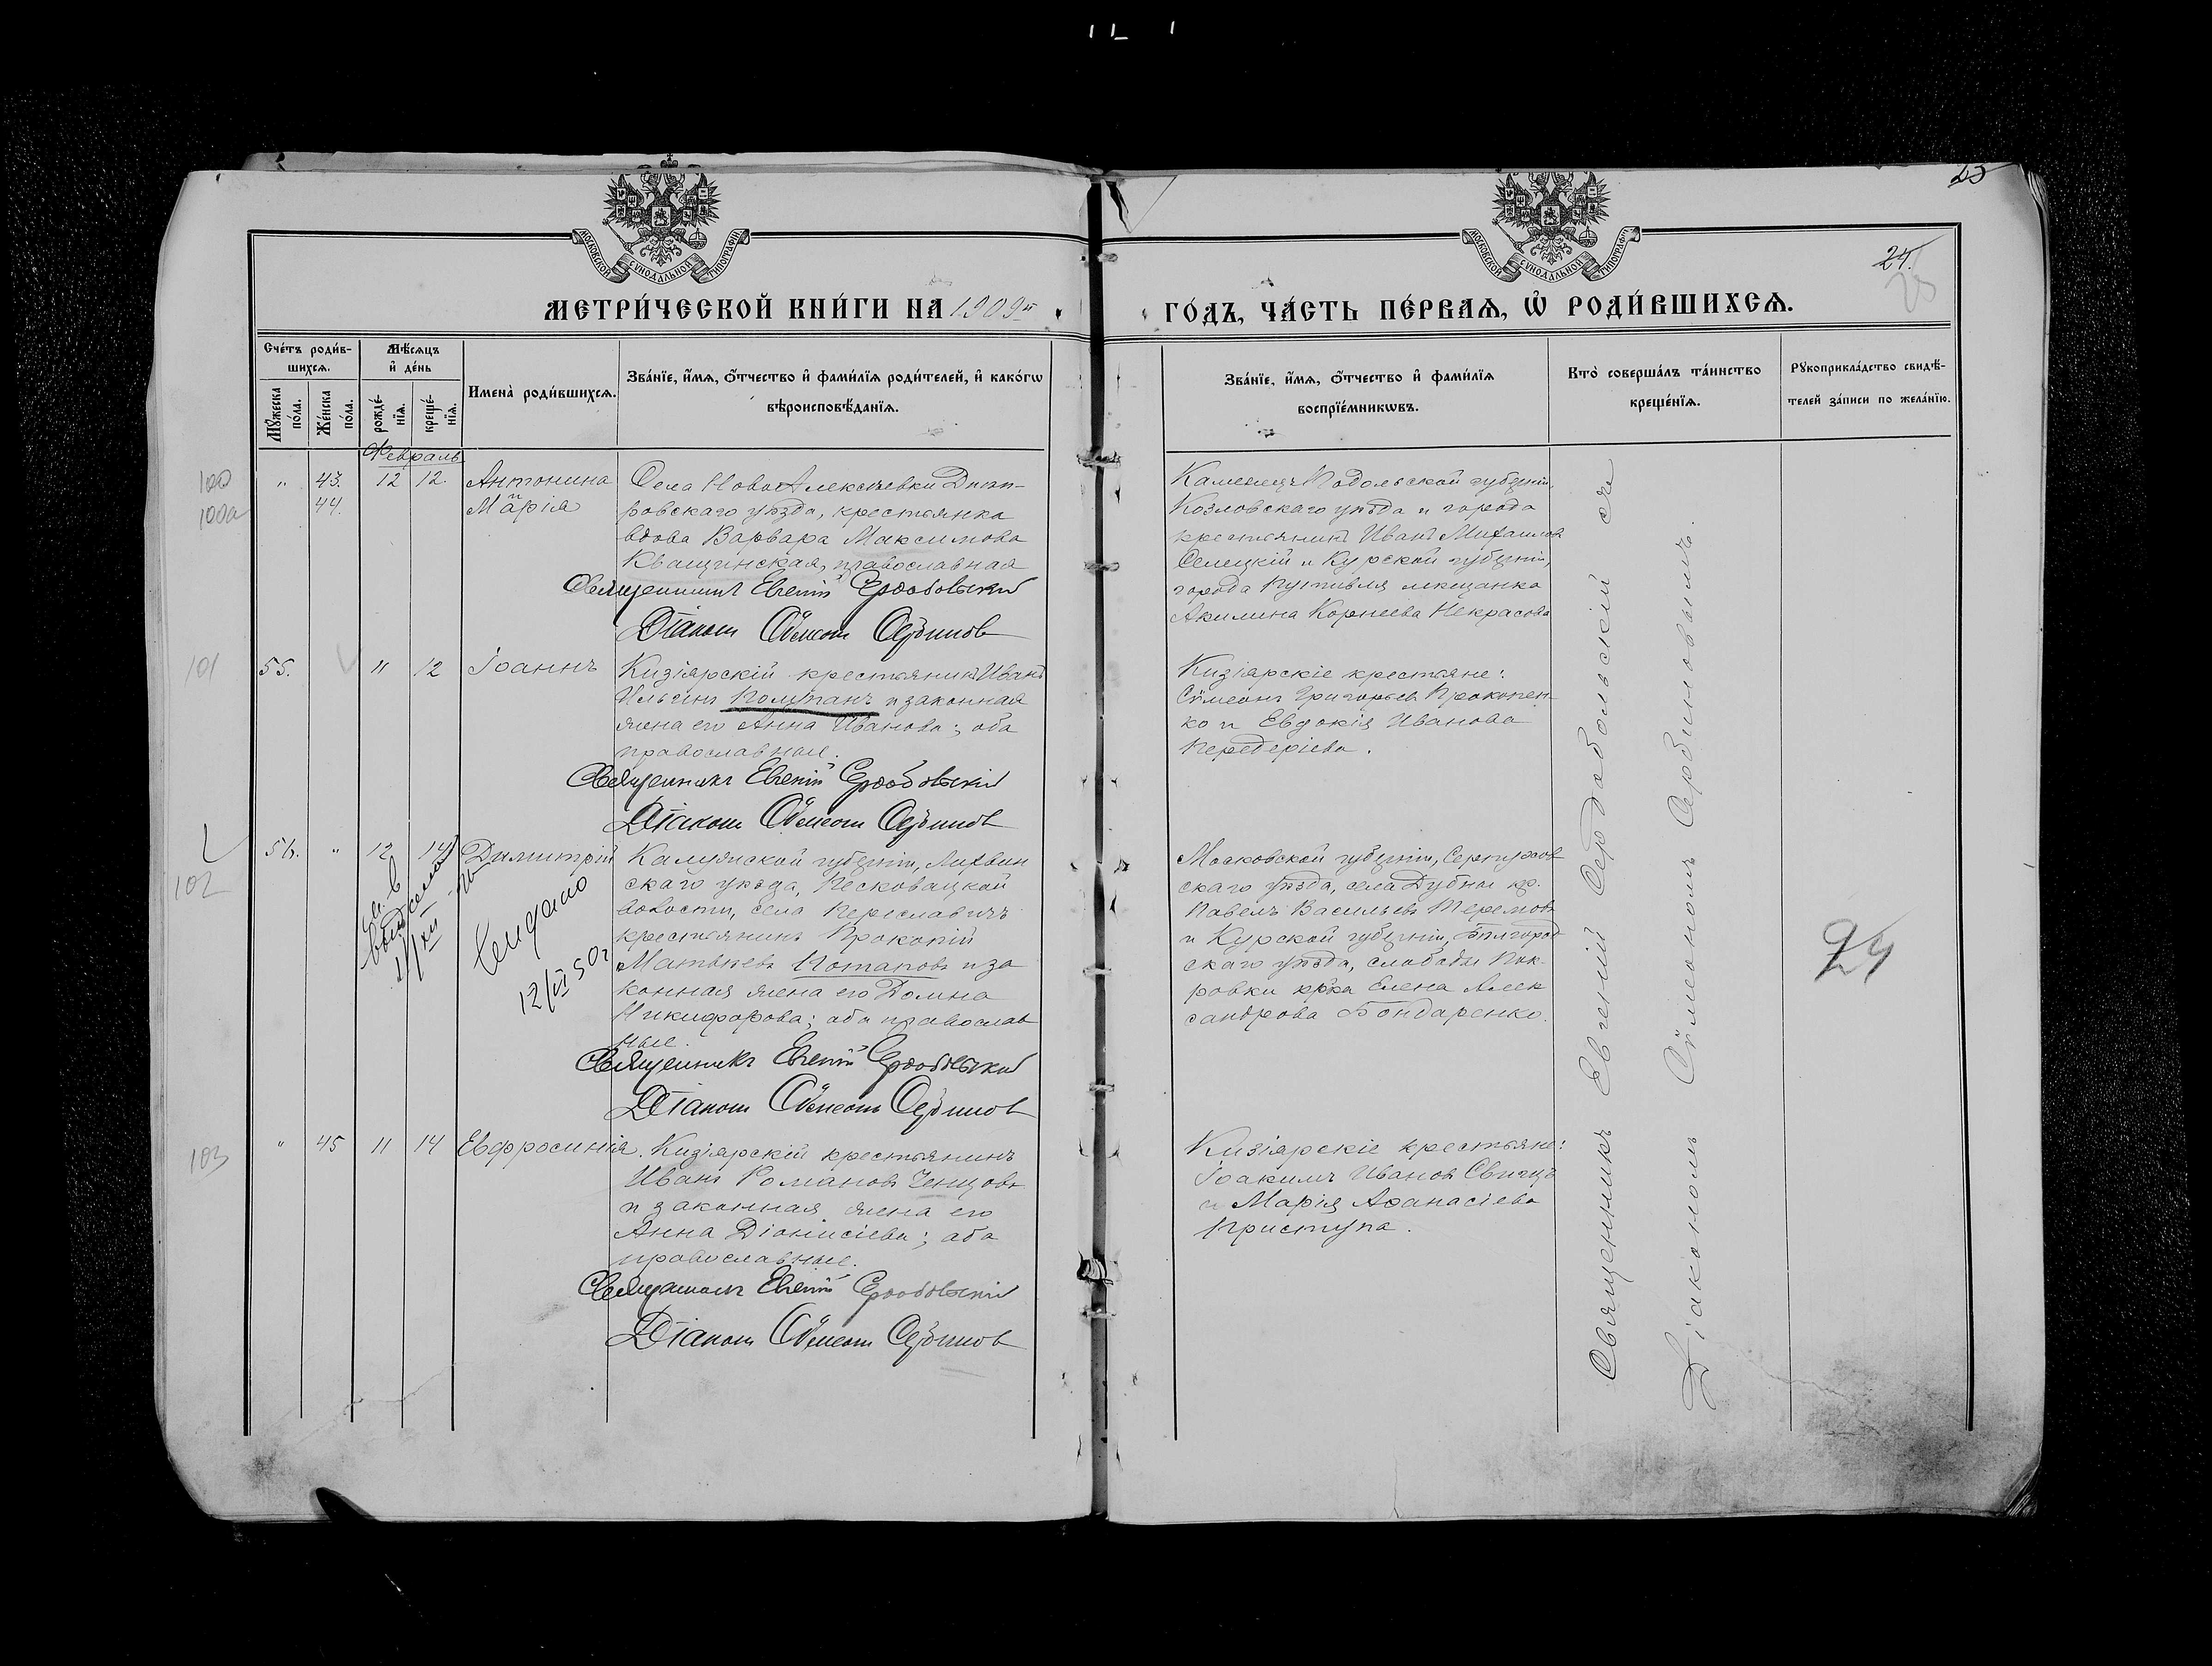 23
24.
25
МОСКОВСКОЙ СУНОДАЛЬНОЙ ТИПОГРАФИИ
МОСКОВСКОЙ СУНОДАЛЬНОЙ ТИПОГРАФИИ
МЕТРИ́ЧЕСКОЙ КНИ́ГИ НА 1909й
ГО́ДЪ, ЧА́СТЬ ПЕ́РВАѦ, Ѡ҆ РОДИ́ВШИХСѦ.
Сче́тъ роди́в-
шихсѧ.
Мѣ́сѧцъ
и҆ де́нь
Мꙋ́жеска
по́ла.
Же́нска
по́ла.
рожде́-
нїѧ.
креще́-
нїѧ.
Имена̀ роди́вшихсѧ.
Зва́нїе, и҆́мѧ, ѻ҆́тчество и҆ фами́лїѧ роди́телей, и҆ како́гѡ
вѣроисповѣ́данїѧ.
Зва́нїе, и҆́мѧ, ѻ҆́тчество и҆ фами́лїѧ
воспрїе́мникѡвъ.
Кто̀ соверша́лъ та́инство
креще́нїѧ.
Рꙋкоприкла́дство свидѣ́-
телей за́писи по жела́нїю.
Февраль
100
100а
" 43. 12 12. Антонина
44. и Марія
Села НовоАлексѣевки Днѣп-
ровскаго уѣзда, крестьянка
вдова Варвара Максимова
Кващинская, православная
Священникъ Евгеній Сердобольскій
Діаконъ Сѵмеонъ Сербиновъ
Каменецъ Подольской губерніи,
Козловскаго уѣзда и города
крестьянинъ Иванъ Михаиловъ
Селецкій и Курской губерніи,
города Путивля мѣщанка
Акилина Корнеева Некрасова
101
55. 11 12 Іоаннъ
Кизіярскій крестьянинъ Иванъ
Ильинъ Колтанъ и законная
жена его Анна Иванова; оба
православные.
Священникъ Евгеній Сердобольскій
Діаконъ Сѵмеонъ Сербиновъ
Кизіярскіе крестьяне:
Сѵмеонъ Григорьевъ Прокопен-
ко и Евдокія Иванова
Передеріева.
102
56. " 12 14 Димитрій
Калужской губерніи, Лихвин
скаго уѣзда, Песковацкой
волости, села Переславичъ
крестьянинъ Прокопій
Матвѣевъ Потаповъ и за
конная жена его Домна
Никифорова; оба православ
ные.
Священникъ Евгеній Сердобольскій
Діаконъ Сѵмеонъ Сербиновъ
12/VI 50г
Московской губерніи, Серпухов
скаго уѣзда, села Дубны кр.
Павелъ Васильевъ Теремовъ
и Курской губерніи, Бѣлгород
скаго уѣзда, слободы Пок-
ровки кр-ка Елена Алек
сандрова Бондаренко.
24
103
" 45 11 14 Евфросинія.
Кизіярскій крестьянинъ
Иванъ Романовъ Ченцовъ
и законная жена его
Анна Діонисіева; оба
православные.
Священникъ Евгеній Сердобольскій
Діаконъ Сѵмеонъ Сербиновъ
Кизіярскіе крестьяне:
Іоакимъ Ивановъ Свищъ
и Марія Аѳанасіева
Приступа.
Священникъ Евгеній Сердобольскій съ
Діакономъ Сѵмеономъ Сербиновымъ.